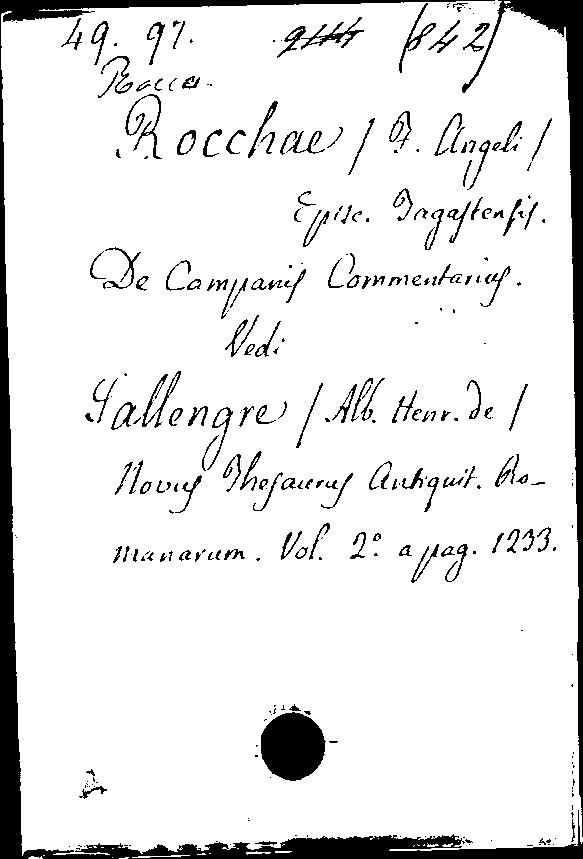 49. 97. (842)
Rocca.
Rocchae / F. Angeli /
Episc. Tagastensis.
De Campanis Commentarius.
Vedi
Sallengre / Alb. Henr. de /
Novus Thesaurus Antiquit. Ro-
manarum. Vol. 2.º a pag. 1233.